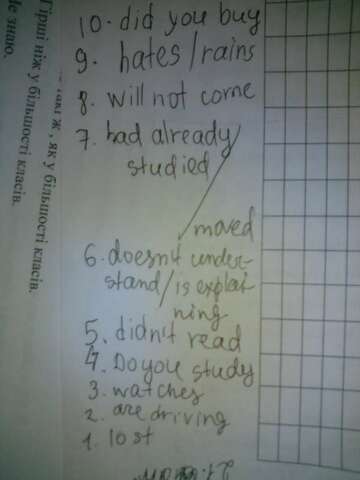 10. did you buy
9. hates/rains
8. will not come
7. had already/
studied
moved
6. doesn't under-
stand/is explai-
ning
5. didn't read
4. Do you study
3. watches
2. are driving
1. lost
Гірші ніж у більшості класів.
Не знаю.
ж, як у більшості класів.